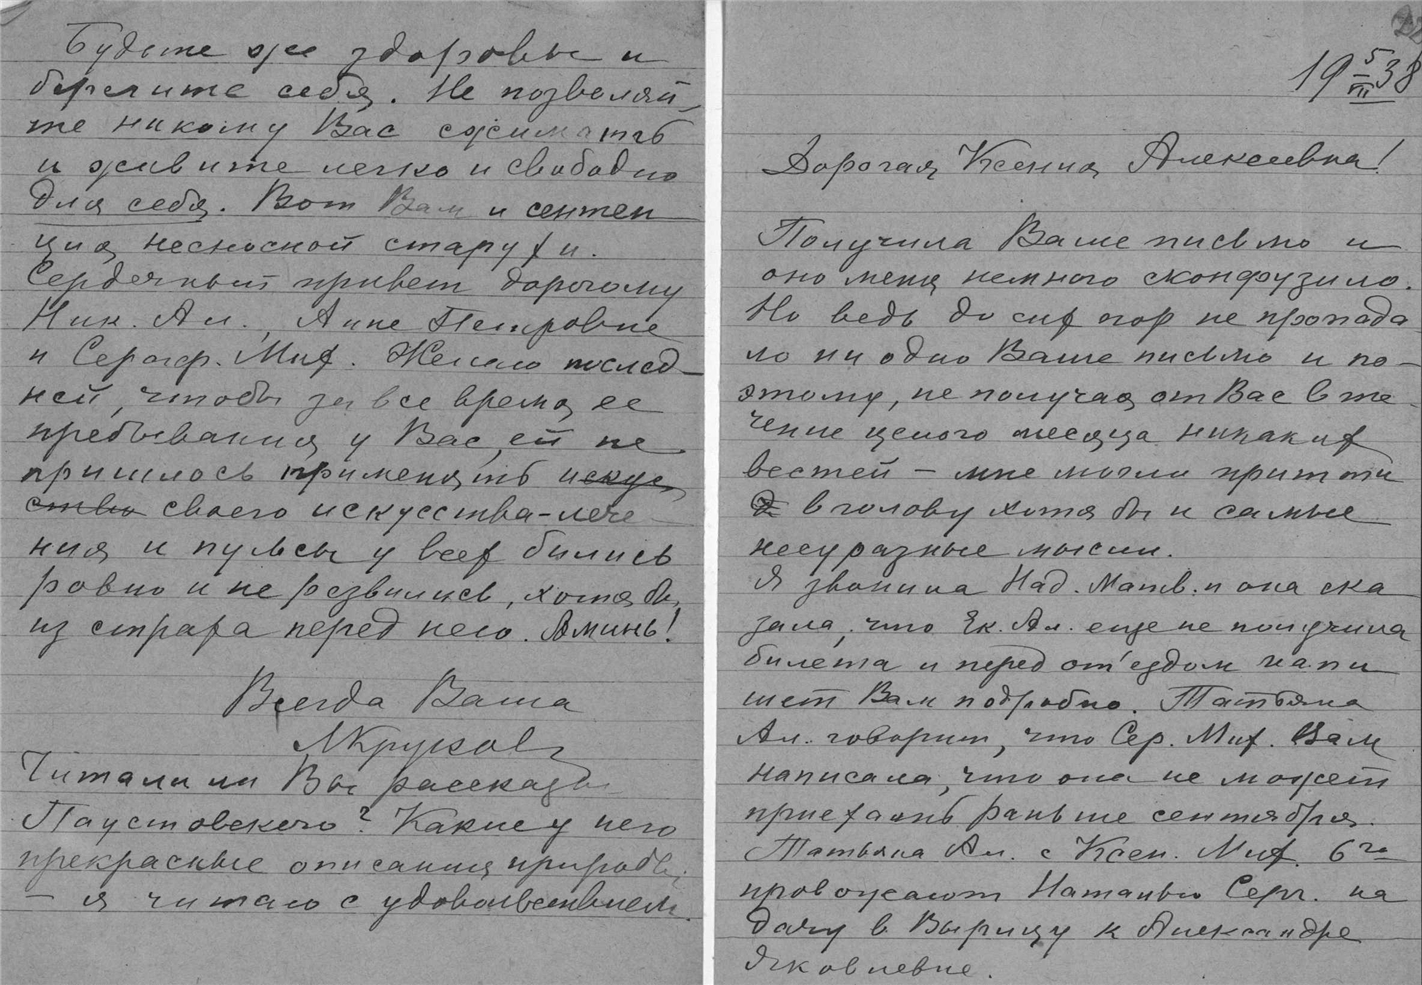 Будьте же здоровы и
берегите себя. Не позволяй-
те никому Вас сжимать
и живите легко и свободно
для себя. Вот Вам и сентен
ция несносной старухи.
Сердечный привет дорогому
Ник. Ал., Анне Петровне
и Сераф. Мих. Желаю послед-
ней, чтобы за все время ее
пребывания у Вас ей не
пришлось применять искус
ство своего искусства-лече
ния и пульсы у всех бились
ровно и не резвились, хотя бы
из страха перед нею. Аминь!
Всегда Ваша
Читали ли Вы рассказы
Паустовского? Какие у него
прекрасные описания природы
– я читаю с удовольствием.
19 5/VII 38
Дорогая Ксения Алексеевна!
Получила Ваше письмо и
оно меня немного сконфузило.
Но ведь до сих пор не пропада
ло ни одно Ваше письмо и по-
этому, не получая от Вас в те-
чение целого месяца никаких
вестей – мне могли притти
в голову хотя бы и самые
несуразные мысли.
Я звонила Над. Матв. и она ска
зала, что Ек. Ал. еще не получила
билета и перед от'ездом напи
шет Вам подробно. Татьяна
Ал. говорит, что Сер. Мих. Вам
написала, что она не может
приехать раньше сентября.
Татьяна Ал. с Ксен. Мих. 6го
провожают Наталью Серг. на
дачу в Вырицу к Александре
Яковлевне.